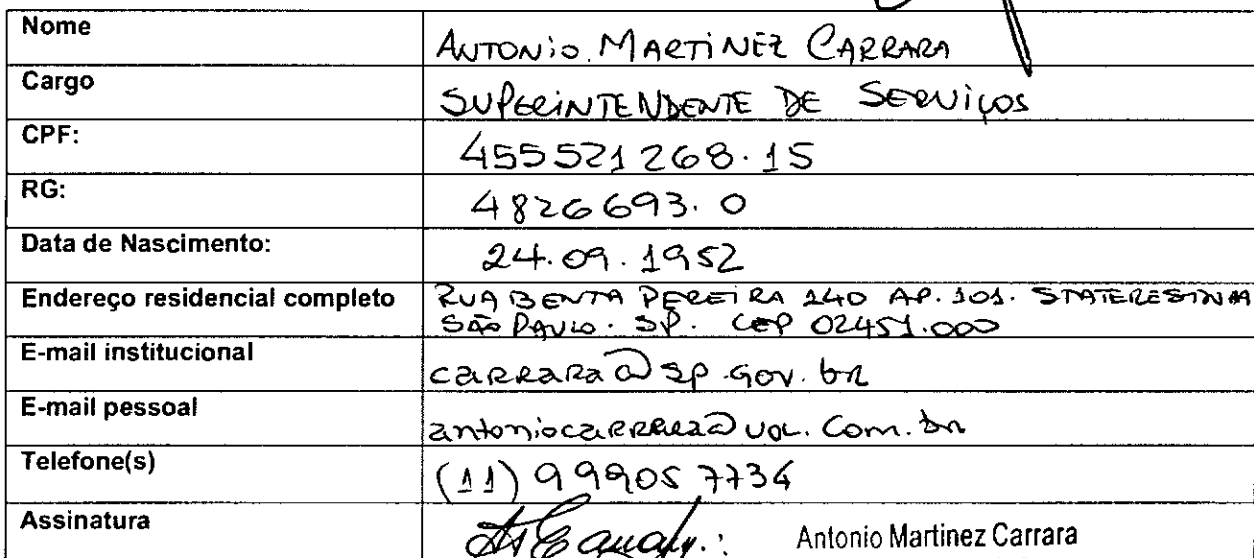 Nome ANTONIO MARTINEZ CARRARA
Cargo SUPERINTENDENTE DE SERVIÇOS
CPF: 455521268.15
RG: 4826693.0
Data de Nascimento: 24.09.1952
Endereço residencial completo RUA BENTA PEREIRA 240 AP. 101. STATERESINHA
SÃO PAULO. SP. CEP 02451.000
E-mail institucional carrara@sp.gov.br
E-mail pessoal antoniocarrara@uol.com.br
Telefone(s) (11) 99905 7734
Assinatura Antonio Martinez Carrara